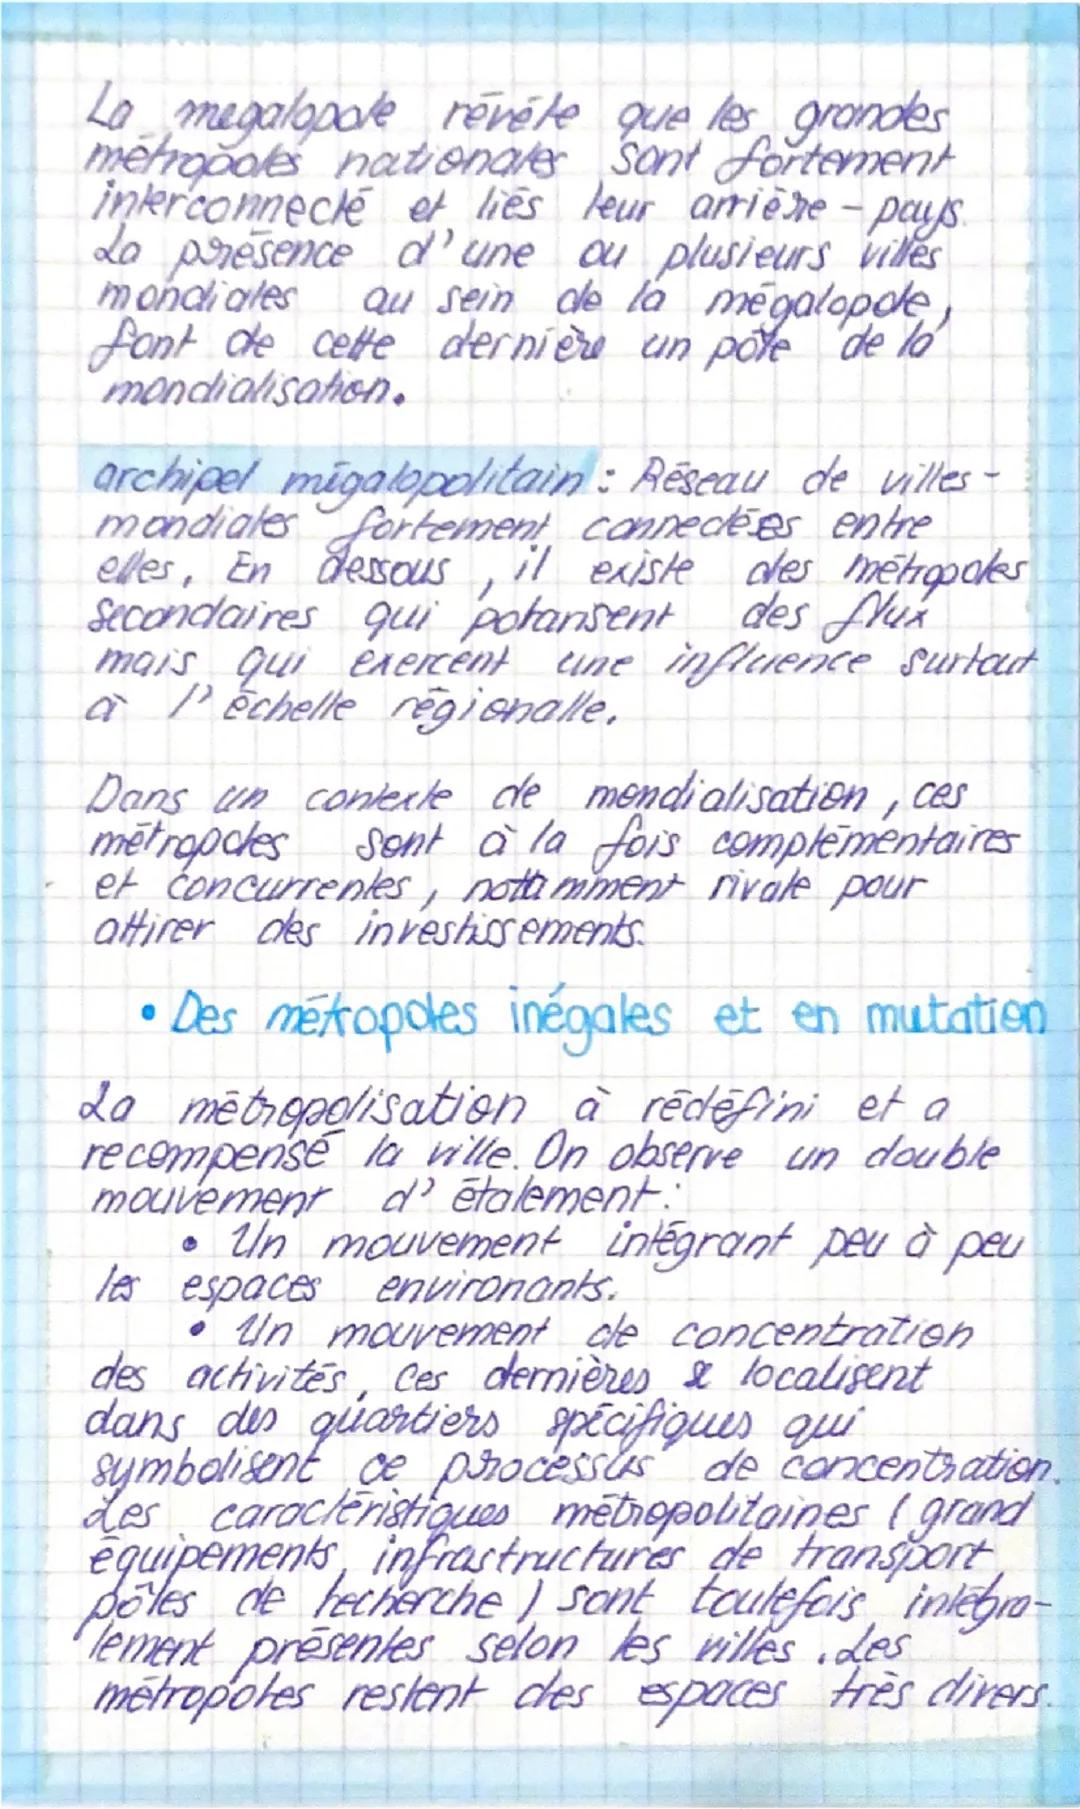 La megalopole révéle que les grandes
métropoles nationales sont fortement
interconnecté et liés leur arrière-pays.
La présence d'une ou plusieurs villes
mondiales au sein de la mégalopole,
font de cette dernière un pôle de la
mondialisation.
archipel mégalopolitain : Réseau de villes-
mondiales fortement connectées entre
elles, En dessous, il existe des métropoles
secondaires qui polarisent des flux
mais qui exercent une influence surtout
à l'échelle régionalle.
Dans un contexte de mondialisation, ces
métropoles sont à la fois complémentaires
et concurrentes, nottamment rivale pour
attirer des investissements.
• Des métropoles inégales et en mutation
La métropolisation à rédéfini et a
recompensé la ville. On observe un double
mouvement d'étalement :
• Un mouvement intégrant peu à peu
les espaces environants.
• Un mouvement de concentration
des activités, Ces dernières se localisent
dans des quartiers spécifiques qui
symbolisent ce processus de concentration.
Les caractéristiques métropolitaines ( grand
équipements, infrastructures de transport
pôles de recherche ) sont toutefois intégra-
lement présentes selon les villes. Les
métropoles restent des espaces très divers.